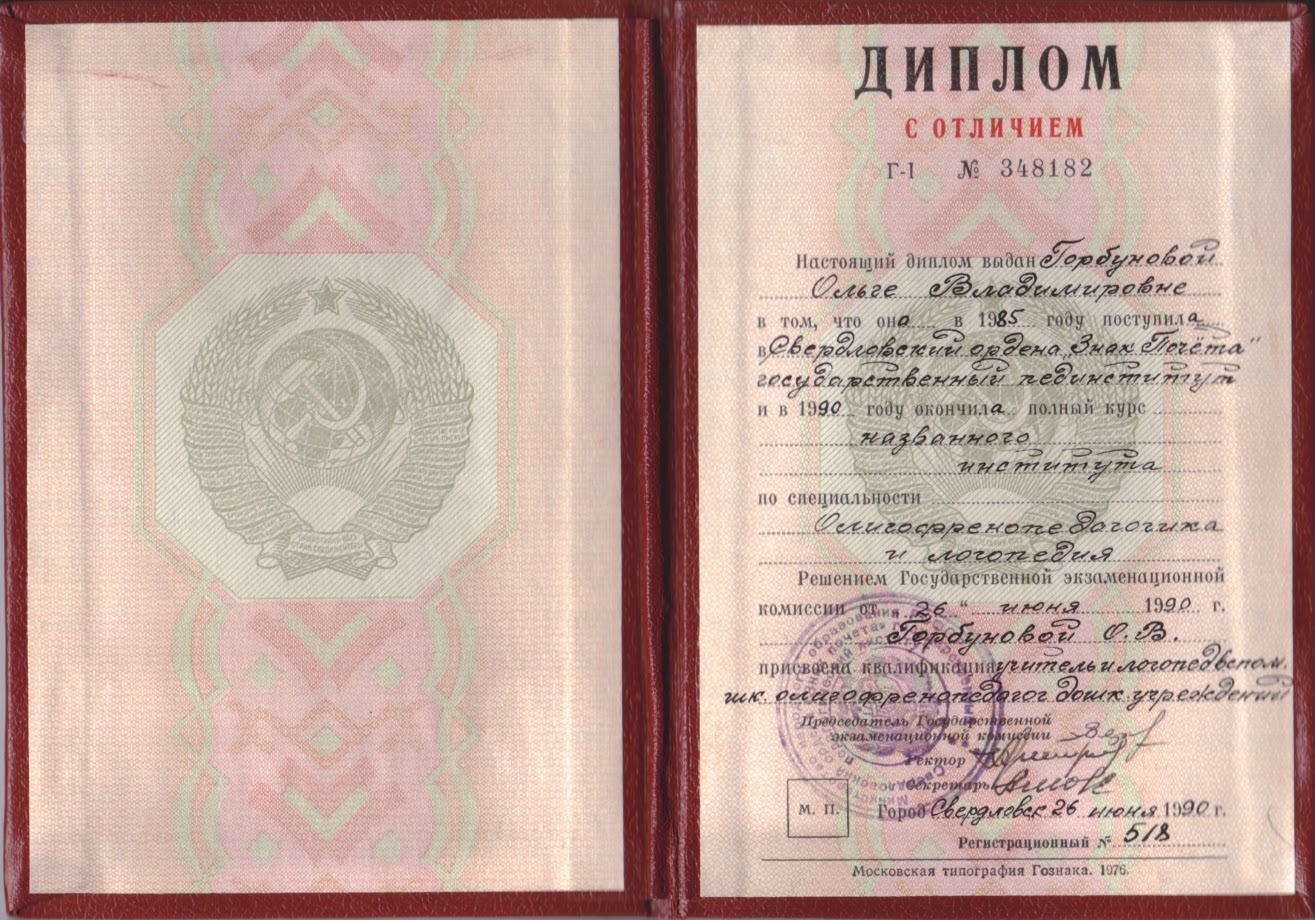 ДИПЛОМ
С ОТЛИЧИЕМ
Г-I № 348182
Настоящий диплом выдан Горбуновой
Ольге Владимировне
в том, что она в 1985 году поступила
в Свердловский ордена „Знак Почёта"
государственный пединститут
и в 1990 году окончила полный курс
названного
института
по специальности
Олигофренопедагогика
и логопедия
Решением Государственной экзаменационной
комиссии от „26" июня 1990 г.
Горбуновой О.В.
присвоена квалификация учитель и логопед вспом.
шк. олигофренопедагог дошк. учреждений
Председатель Государственной
экзаменационной комиссии
Ректор
Секретарь
М. П. Город Свердловск 26 июня 1990 г.
Регистрационный № 518
Московская типография Гознака. 1976.